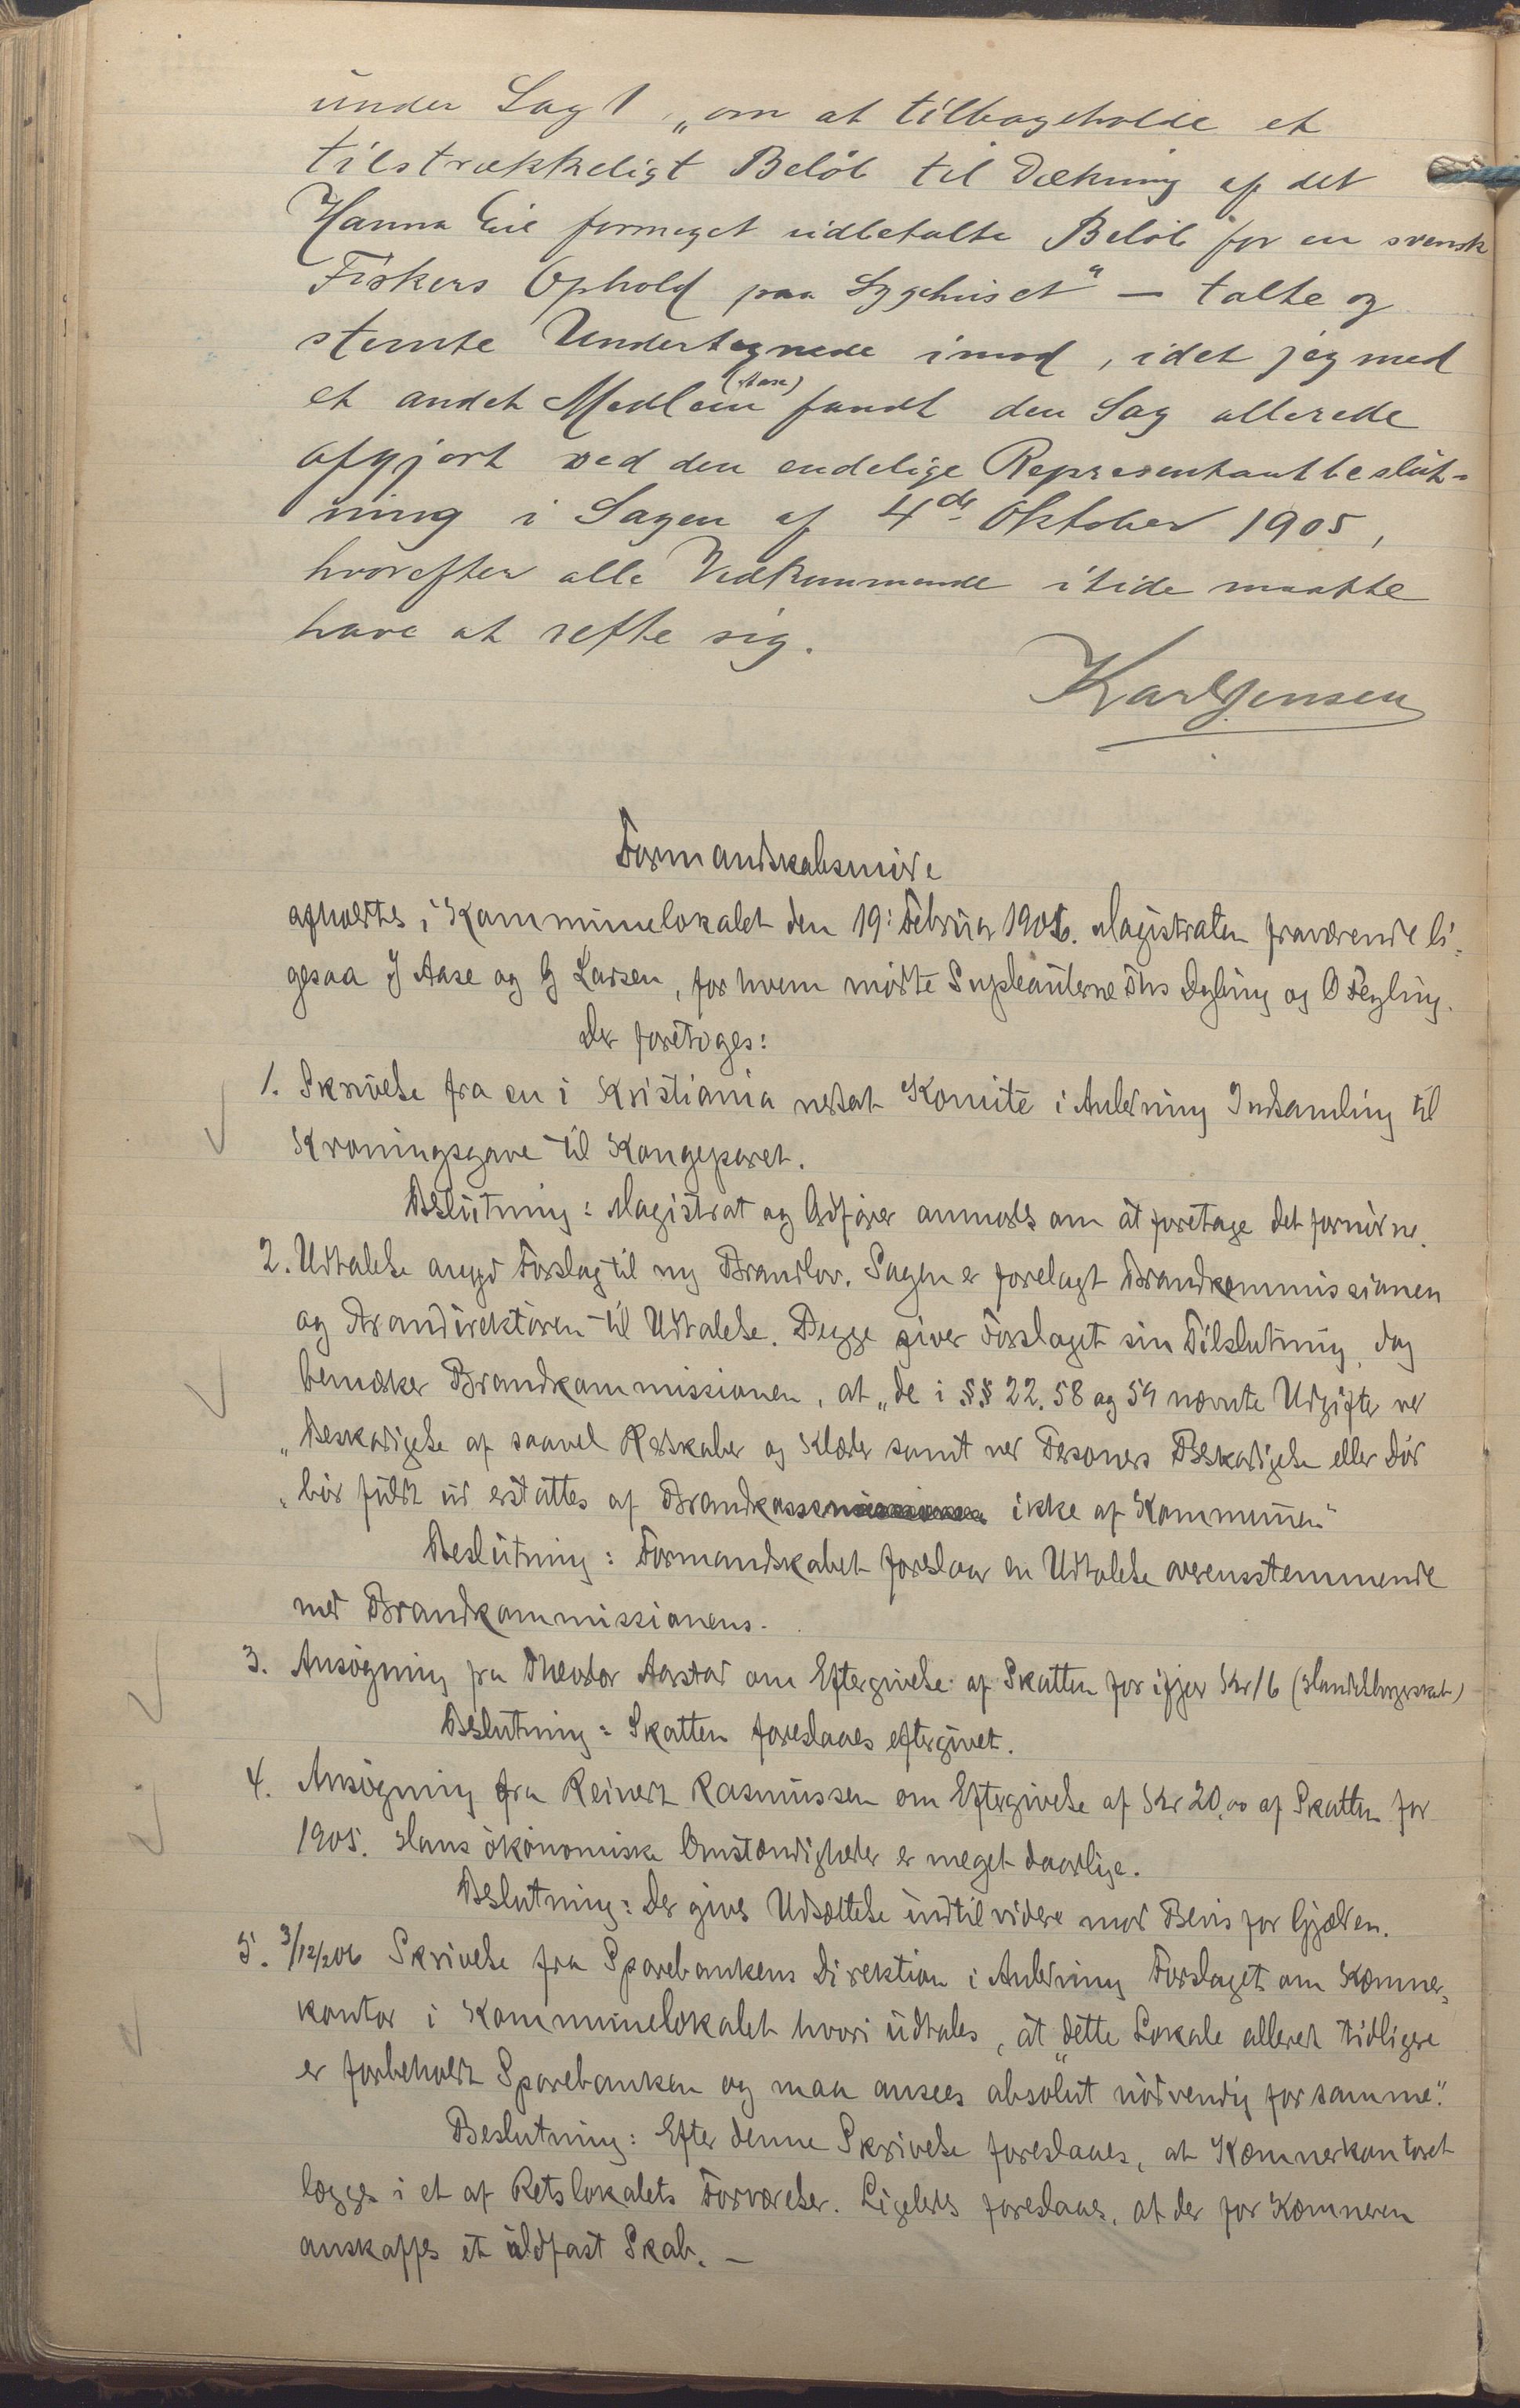 under Sag 1 „om at tilbageholde et
tilstrækkeligt Beløb til Dækning af det
Hanna Eie formeget udbetalte Beløb for en svensk
Fiskers Ophold paa Sygehuset" — talte og
stemte Undertegnede imod, idet jeg med
et andet Medlem (Aase) fandt den Sag allerede
afgjort ved den endelige Representantbeslut-
ning i Sagen af 4de Oktober 1905,
hvorefter alle Vedkommende itide maatte
have at rette sig.
Karl Jensen
Formandskabsmøde
afholdtes i Kommunelokalet den 19: Februar 1906. Magistraten fraværende li-
gesaa J Aase og G Larsen, for hvem mødte Supleanterne Ths Dybing og O Tegling.
Der foretoges:
1. Skrivelse fra en i Kristiania nedsat Komite i Anledning Indsamling til
Kroningsgave til Kongeparet.
Beslutning: Magistrat og Ordfører anmodes om at foretage det fornødne.
2. Udtalelse angd Forslag til ny Brandlov. Sagen er forelagt Brandkommissionen
og Brandirektøren til Udtalelse. Begge giver Forslaget sin Tilslutning, dog
bemærker Brandkommissionen, at „de i §§ 22. 58 og 59 nævnte Udgifter ved
„Beskadigelse af saavel Redskaber og Klæder samt ved Personers Beskadigelse eller Død
„bør fuldt ud erstattes af Brandkassen ikke af Kommunen"
Beslutning: Formandskabet foreslaar en Udtalelse overensstemmende
med Brandkommissionens.
3. Ansøgning fra Theodor Aarstad om Eftergivelse af Skatten for ifjor Kr 16 (Handelborgerskab)
Beslutning: Skatten foreslaaes eftergivet.
4. Ansøgning fra Reinert Rasmussen om Eftergivelse af Kr 20,00 af Skatten for
1905. Hans økonomiske Omstændigheder er meget daarlige.
Beslutning: Der gives Udsættelse indtil videre mod Bevis for Gjælden.
5. 3/12/206 Skrivelse fra Sparebankens Direktion i Anledning Forslaget om Kæmner-
kontor i Kommunelokalet hvori udtales, at „dette Lokale allered tidligere
er forbeholdt Sparebanken og maa ansees absolut nødvendig for samme."
Beslutning: Efter denne Skrivelse foreslaaes, at Kæmnerkontoret
lægges i et af Retslokalets Forværelser. Ligeledes foreslaaes, at der for Kæmneren
anskaffes et ildfast Skab. —